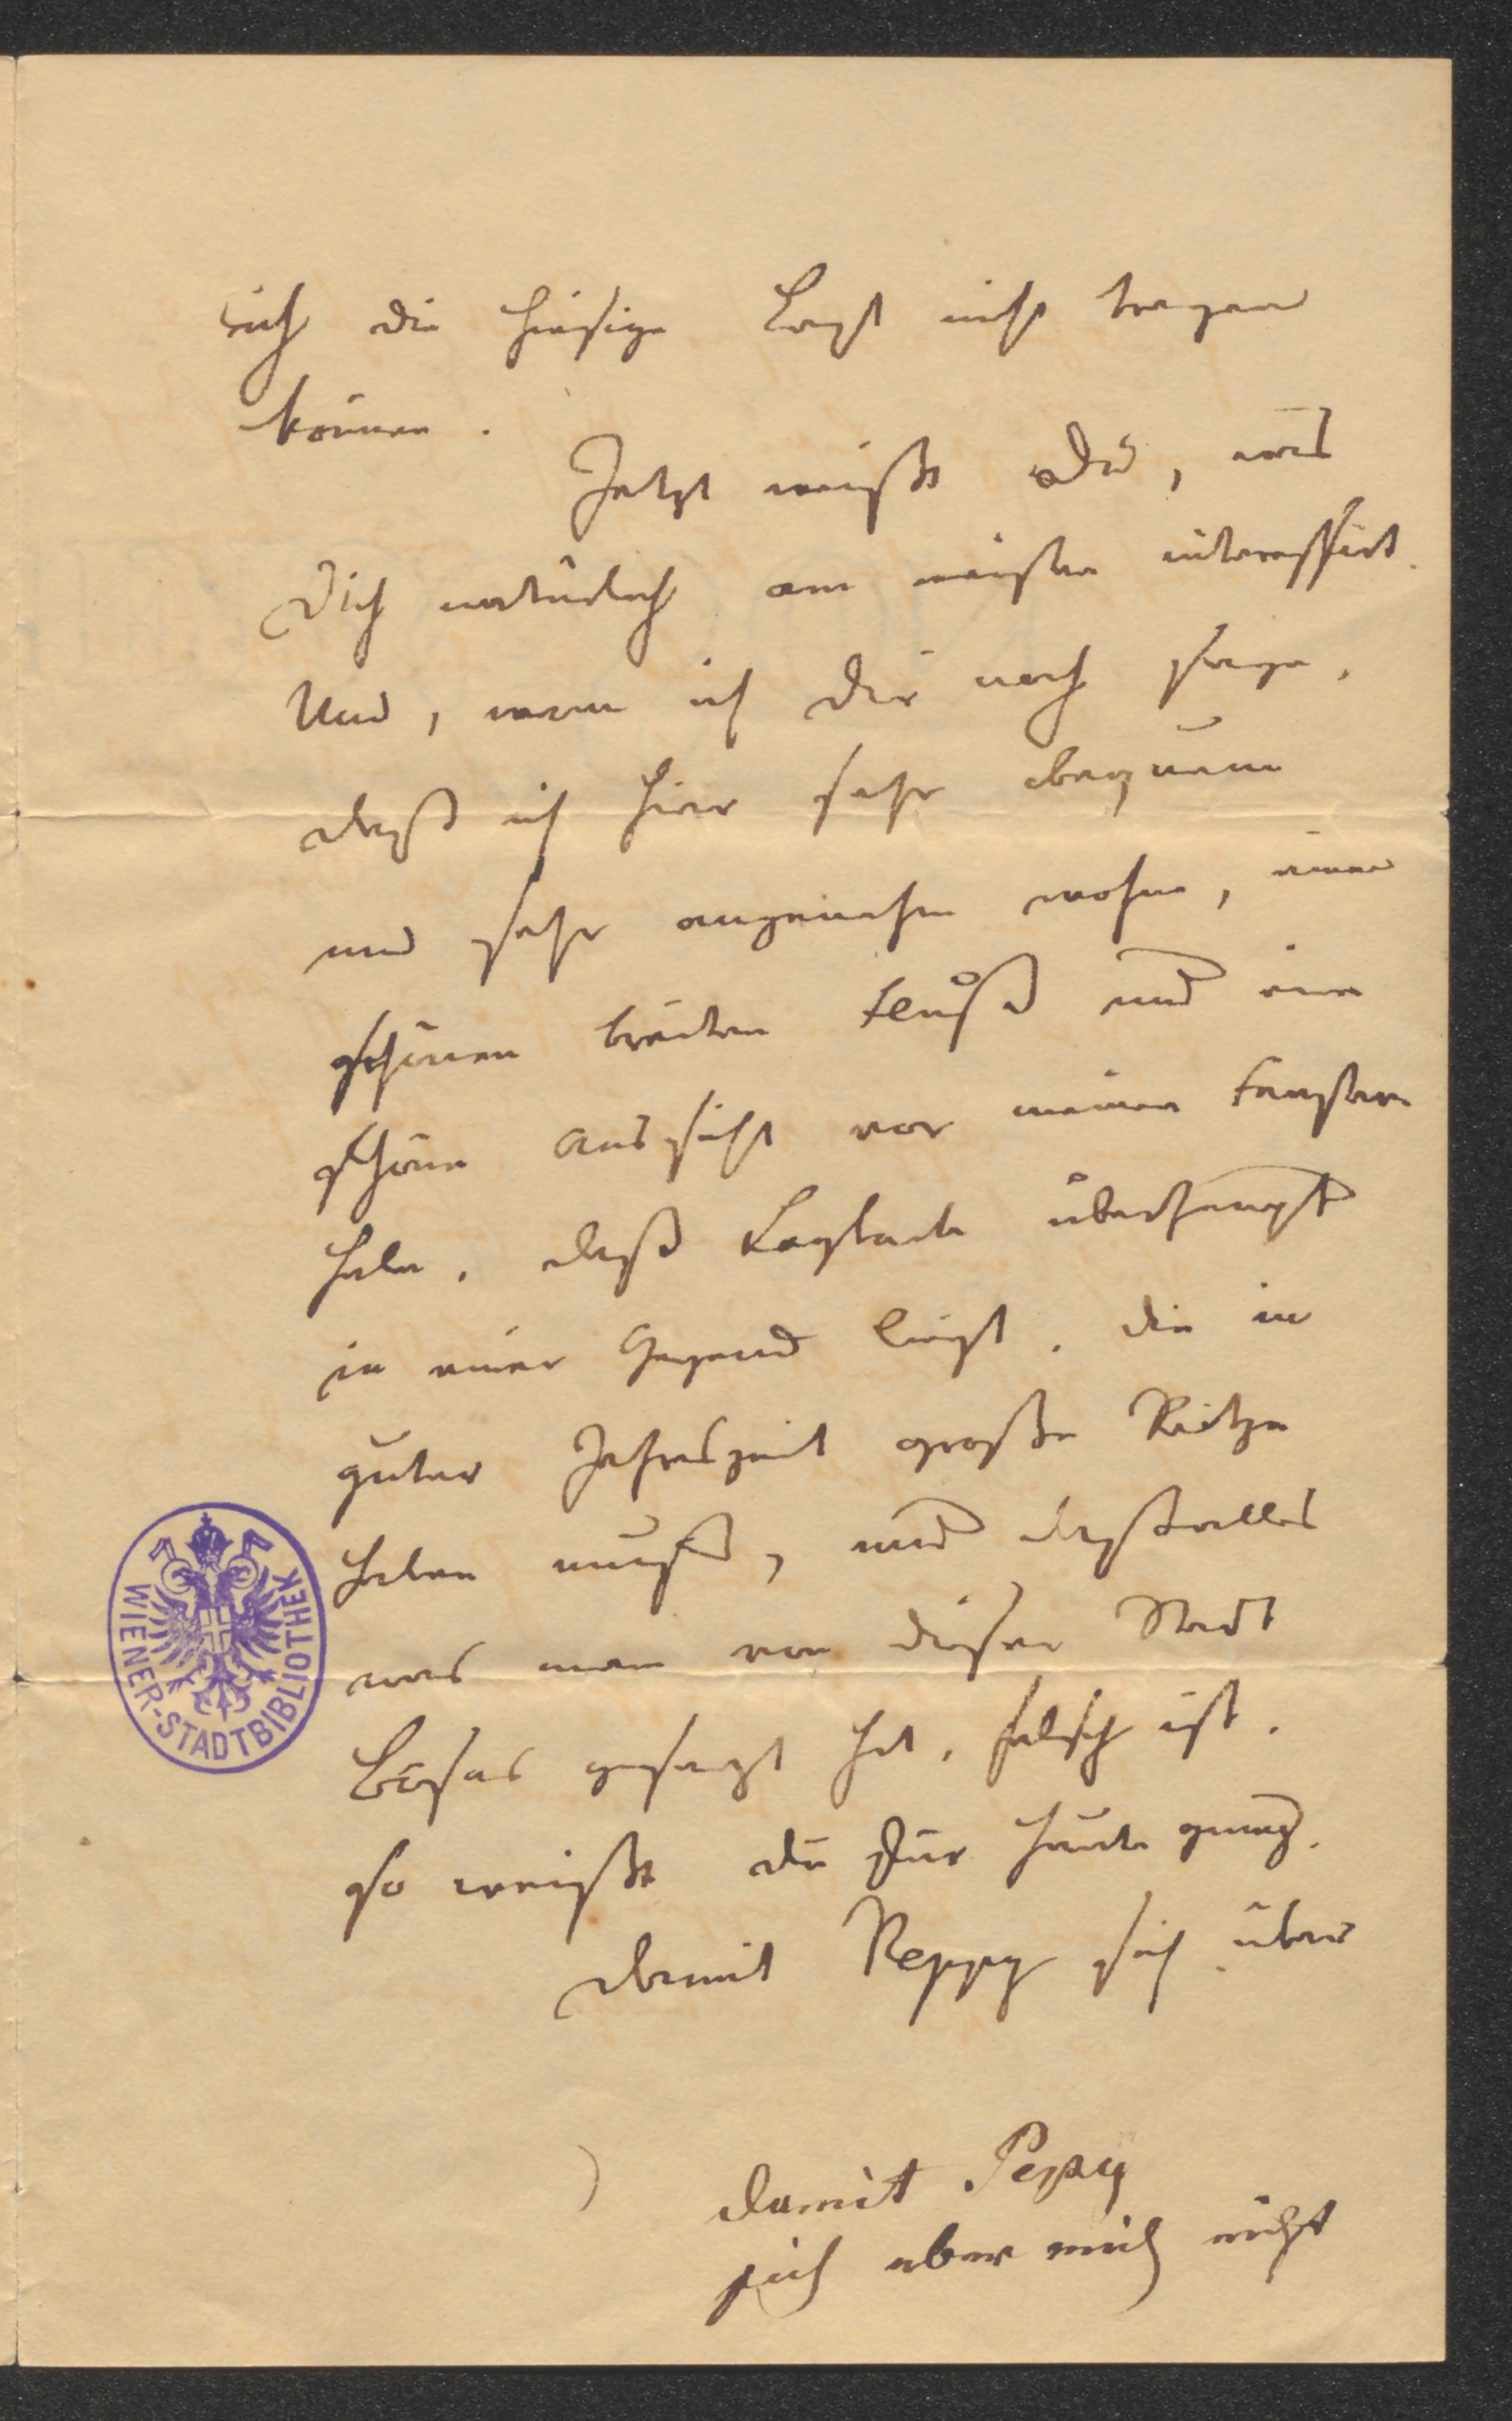 sich die hiesige Last nicht tragen
können.
Jetzt weißt Du, was
Dich natürlich am meisten interessirt.
Und, wenn ich Dir noch sage,
daß ich hier sehr bequem
und sehr angenehm wohne, einen
schönen breiten Fluß und eine
schöne Aussicht vor meinen Fenstern
habe, daß überhaupt
in einer Gegend liegt, die in
guter Jahreszeit große Reitze
haben muß, und daß alles
was man von dieser Stadt
Böses gesagt hat, falsch ist,
so weißt du für heute genug.
Damit Peppy sich über
damit Pepy
sich aber mich nicht
WIENER-STADTBIBLIOTHEK